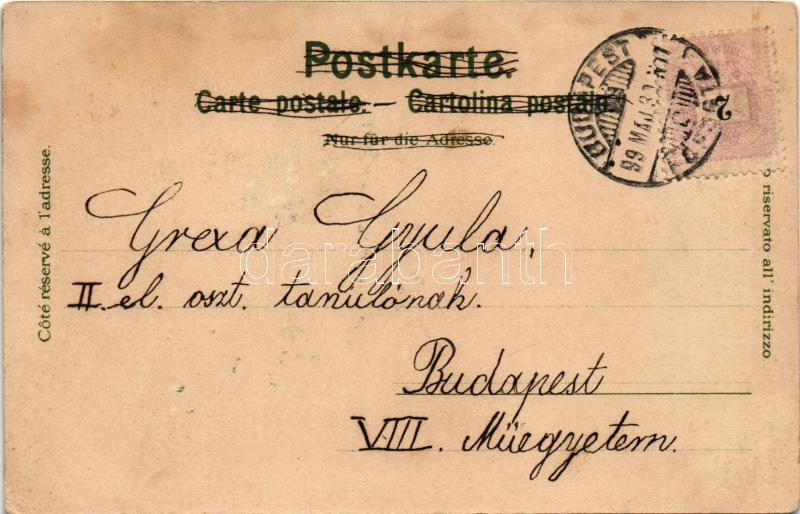 Postkarte.
Carte postale. – Cartolina postale
Nur für die Adresse.
BUDAPEST
99 MÁJ. 3
2
Côté réservé à l'adresse.
riservato all' indirizzo.
Grexa Gyula,
II. el. oszt. tanulónak.
Budapest
VIII. Müegyetem.
darabanth